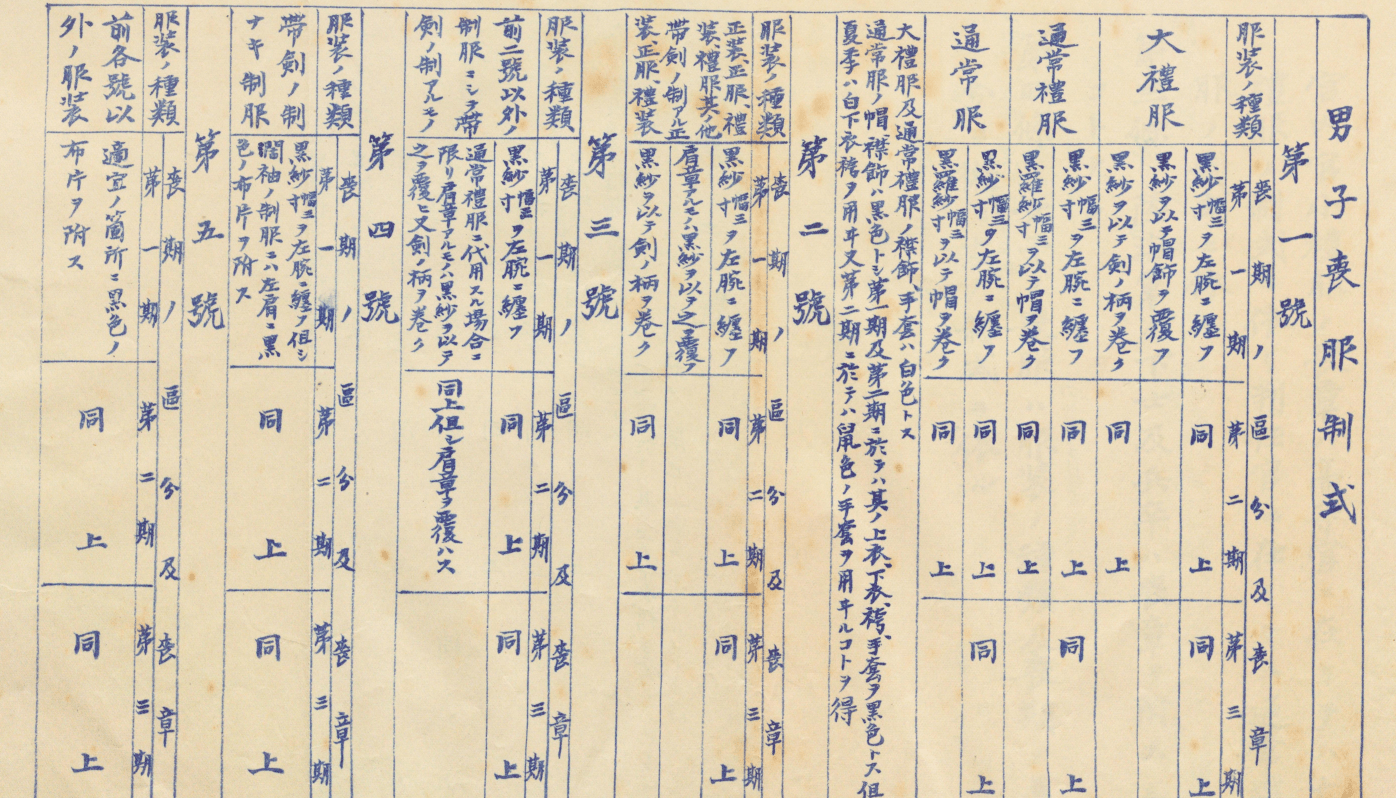 男子喪服制式
第一號
服装ノ種類
喪期ノ區分及喪章
第一期
第二期
第三期
大禮服
黒紗幅三寸ヲ左腕ニ纏フ
同上
同上
黒紗ヲ以テ帽飾ヲ覆フ
黒紗ヲ以テ剣ノ柄ヲ巻ク
同上
通常禮服
黒紗幅三寸ヲ左腕ニ纏フ
同上
同上
黒羅紗幅三寸ヲ以テ帽ヲ巻ク
同上
通常服
黒紗幅三寸ヲ左腕ニ纏フ
同上
同上
黒羅紗幅三寸ヲ以テ帽ヲ巻ク
同上
大禮服及通常禮服ノ襟飾、手套ハ白色トス
通常服ノ帽、襟飾ハ黒色トシ第一期及第二期ニ於テハ其ノ上衣、下衣、袴、手套ヲ黒色トス但
夏季ハ白下衣袴ヲ用ヰ又第二期ニ於テハ鼠色ノ手套ヲ用ヰルコトヲ得
第二號
服装ノ種類
喪期ノ區分及喪章
第一期
第二期
第三期
正装、正服、禮
装、禮服其ノ他
帯剣ノ制アル正
装、正服、禮装
黒紗幅三寸ヲ左腕ニ纏フ
同上
同上
肩章アルモノハ黒紗ヲ以テ之ヲ覆フ
黒紗ヲ以テ剣ノ柄ヲ巻ク
同上
第三號
服装ノ種類
喪期ノ區分及喪章
第一期
第二期
第三期
前二號以外ノ
制服ニシテ帯
剣ノ制アルモノ
黒紗幅三寸ヲ左腕ニ纏フ
同上
同上
通常禮服ニ代用スル場合ニ
限リ肩章アルモノハ黒紗ヲ以テ
之ヲ覆ヒ又剣ノ柄ヲ巻ク
同上但シ肩章ヲ覆ハス
第四號
服装ノ種類
喪期ノ區分及喪章
第一期
第二期
第三期
帯剣ノ制
ナキ制服
黒紗幅三寸ヲ左腕ニ纏フ但シ
濶袖ノ制服ニハ左肩ニ黒
色ノ布片ヲ附ス
同上
同上
第五號
服装ノ種類
喪期ノ區分及喪章
第一期
第二期
第三期
前各號以
外ノ服装
適宜ノ箇所ニ黒色ノ
布片ヲ附ス
同上
同上